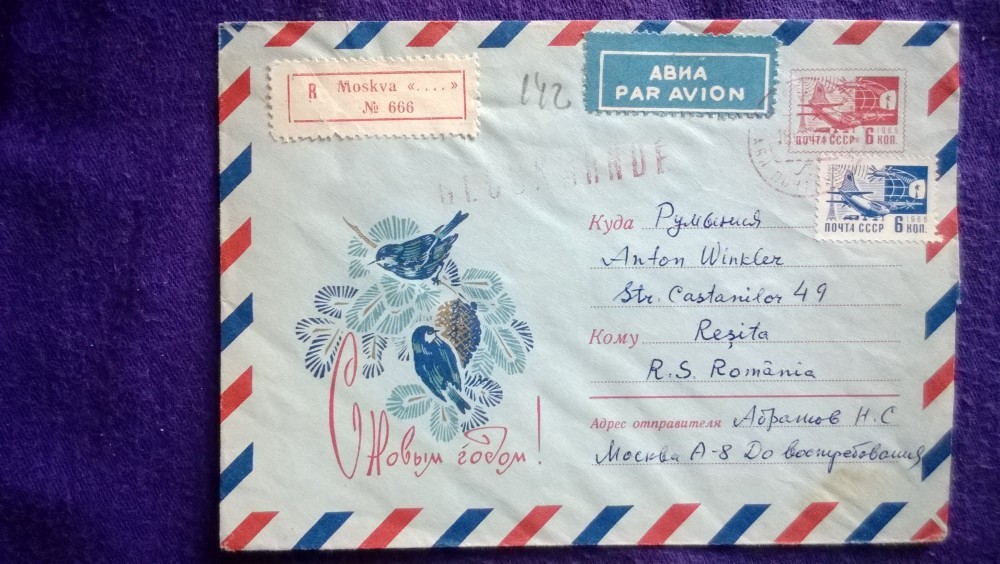 R Moskva «....»
№ 666
142
АВИА
PAR AVION
1966
ПОЧТА СССР 6 КОП.
1966
ПОЧТА СССР 6 КОП.
Куда Румыния
Anton Winkler
Str. Castanilor 49
Кому Reşita
R.S. România
Адрес отправителя Абрамов Н.С
Москва А-8 До востребования
С Новым годом!